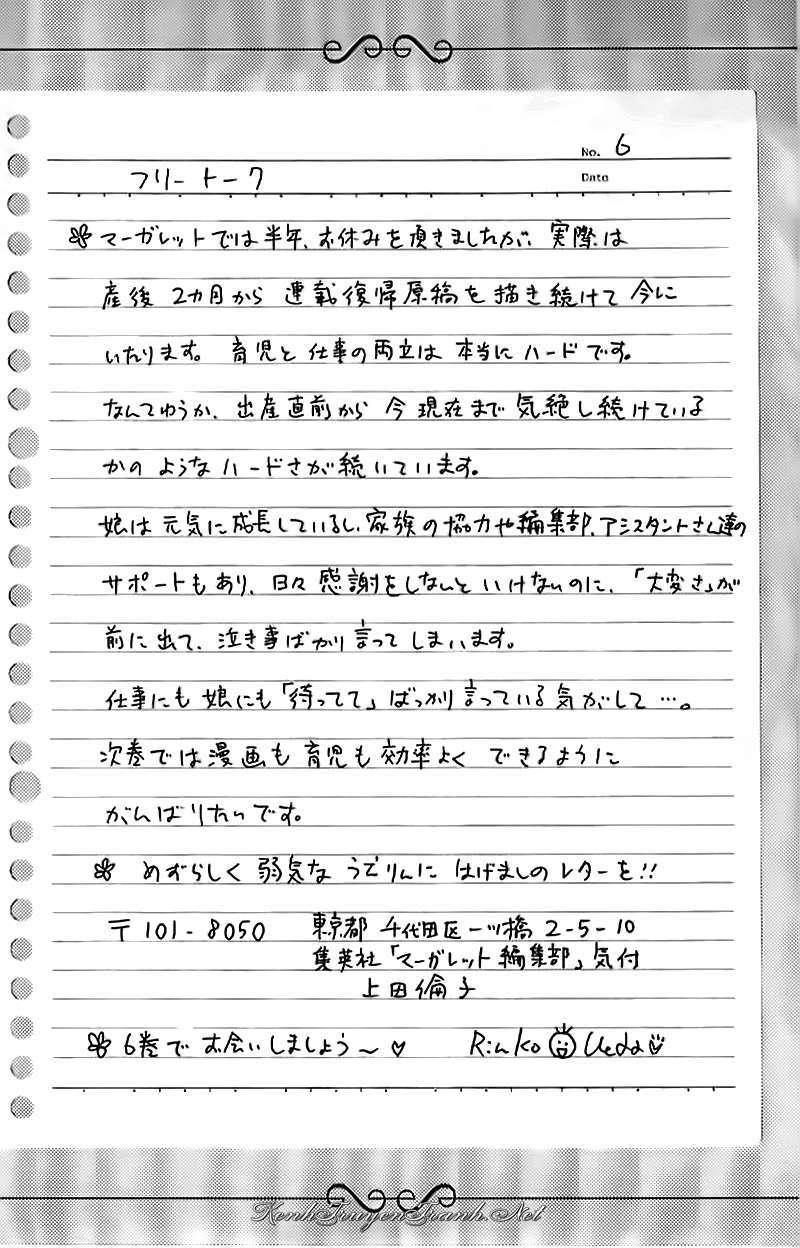 No. 6
フリートーク
Date
マーガレットでは半年、お休みを頂きましたが、実際は
産後 2カ月から 連載復帰原稿を描き続けて 今に
いたります。 育児と仕事の両立は 本当にハードです。
なんてゆうか、出産直前から 今現在まで 気絶し続けている
かの ようなハードさが続いています。
娘は 元気に成長しているし、家族の協力や編集部、アシスタントさん達の
サポートもあり、日々 感謝をしないと いけないのに、「大変さ」が
前に出て、泣き事ばかり言って しまいます。
仕事にも 娘にも「待ってて」ばっかり言っている気がして…。
次巻では漫画も 育児も 効率よく できるように
がんばりたいです。
めずらしく 弱気な うどりんに はげましのレターを!!
〒101-8050 東京都 千代田区一ツ橋 2-5-10
集英社「マーガレット編集部」気付
上田倫子
6巻で お会いしましょう〜♡ Rinko Ueda
KenhTruyenTranh.Net